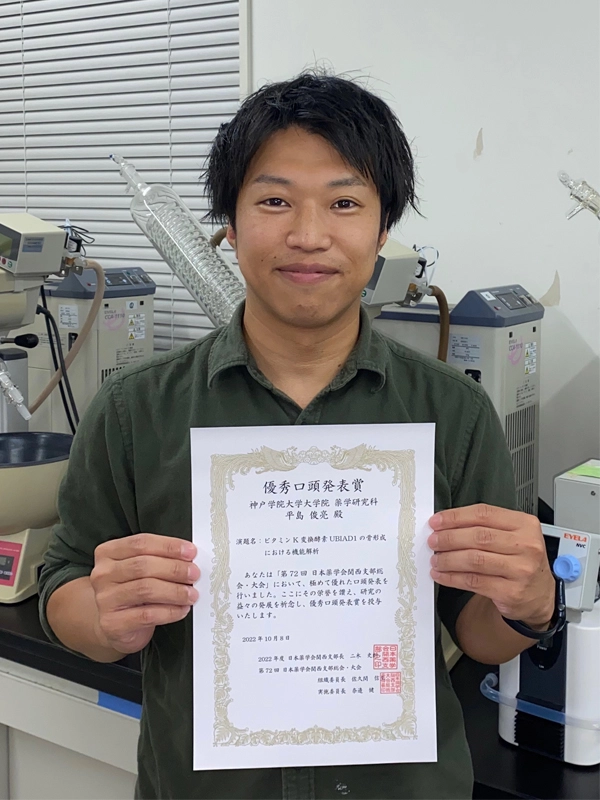 優秀口頭発表賞
神戸学院大学大学院 薬学研究科
平島 俊亮 殿
演題名：ビタミンK変換酵素UBIAD1の骨形成
における機能解析
あなたは「第72回 日本薬学会関西支部総
会・大会」において、極めて優れた口頭発表を
行いました。ここにその学誉を讃え、研究の
益々の発展を祈念し、優秀口頭発表賞を授与
いたします。
2022年10月8日
2022年度 日本薬学会関西支部長 二木 史
第72回 日本薬学会関西支部総会・大会
組織委員長 佐久間 信
実施委員長 赤邊 健
EYELA
NVC